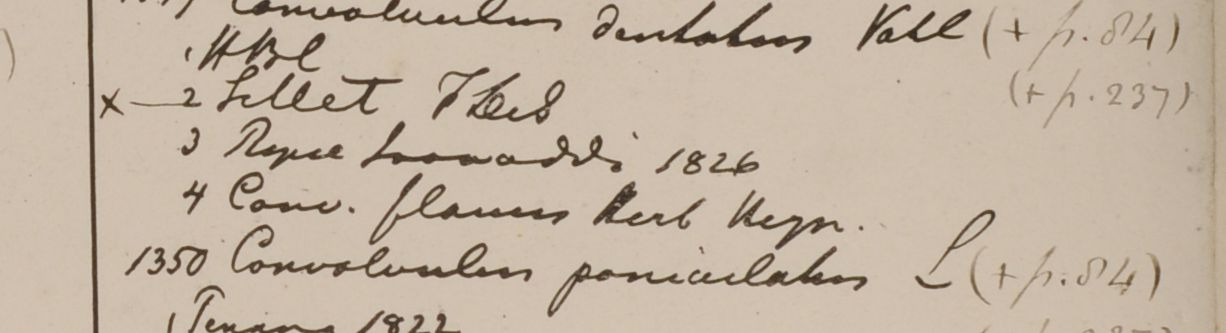 Convolvulus dentatus Vahl (+ p. 84)
1 HBC
x — 2 Sillet FdeS (+ p. 237)
3 Ripae Irawaddi 1826
4 Conv. flavus Herb Heyn.
1350 Convolvulus paniculatus L (+ p. 84)
1 Penang 1822